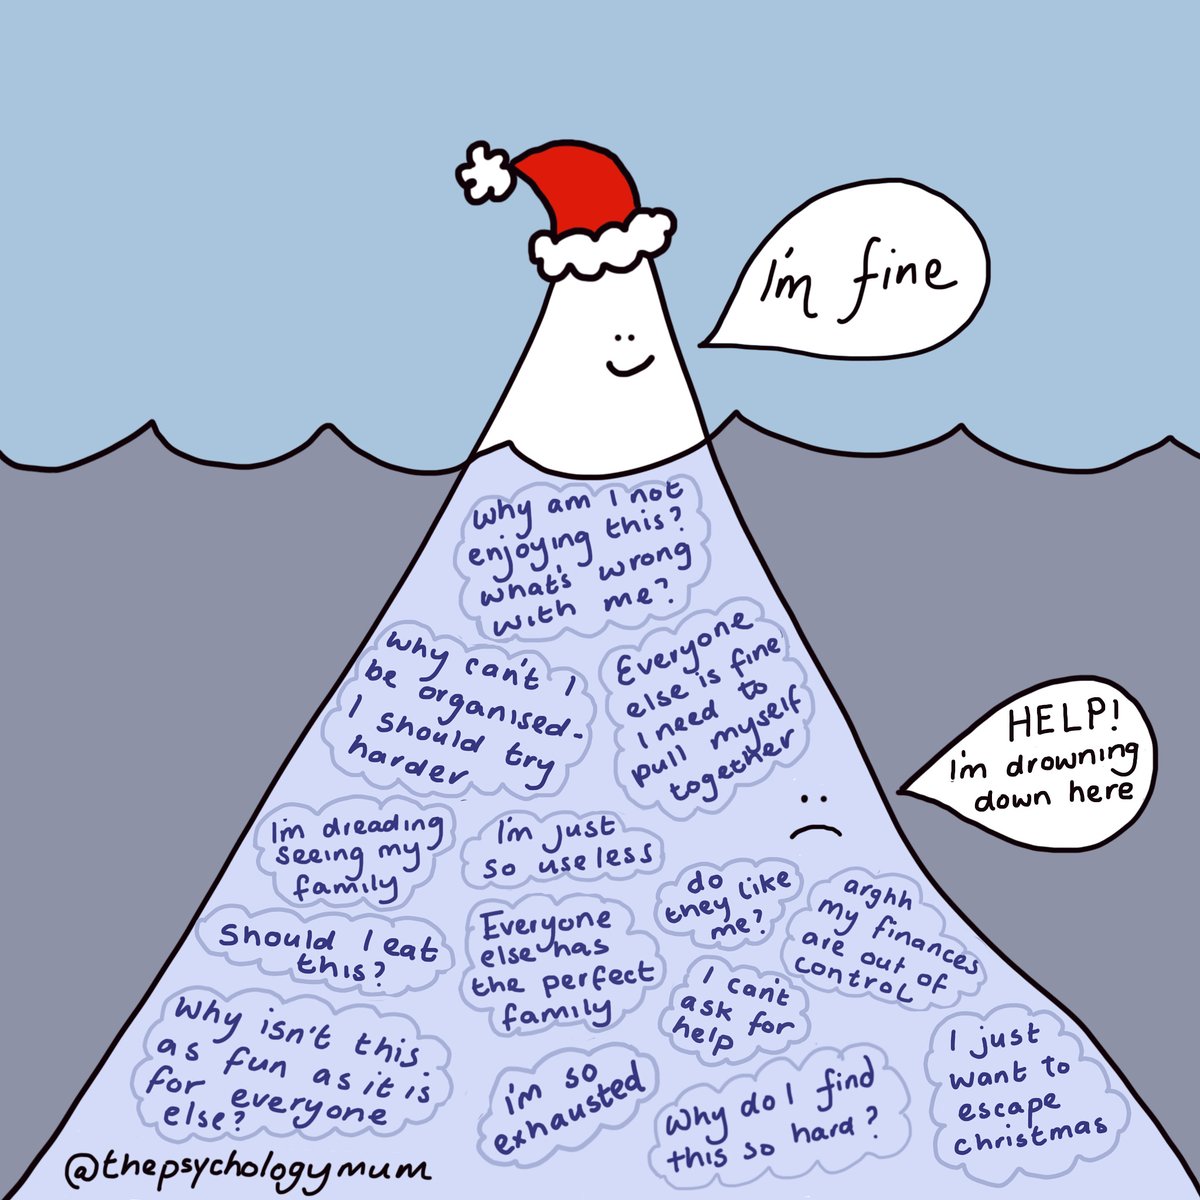 I'm fine
why am I not
enjoying this?
what's wrong
with me?
why can't I
be organised-
I should try
harder
Everyone
else is fine
I need to
pull myself
together
HELP!
I'm drowning
down here
I'm dreading
seeing my
family
I'm just
so useless
do
they like
me?
arghh
my finances
are out of
control
Should I eat
this?
Everyone
else has
the perfect
family
I can't
ask for
help
Why isn't this
as fun as it is
for everyone
else?
i'm so
exhausted
why do I find
this so hard?
I just
want to
escape
christmas
@thepsychologymum